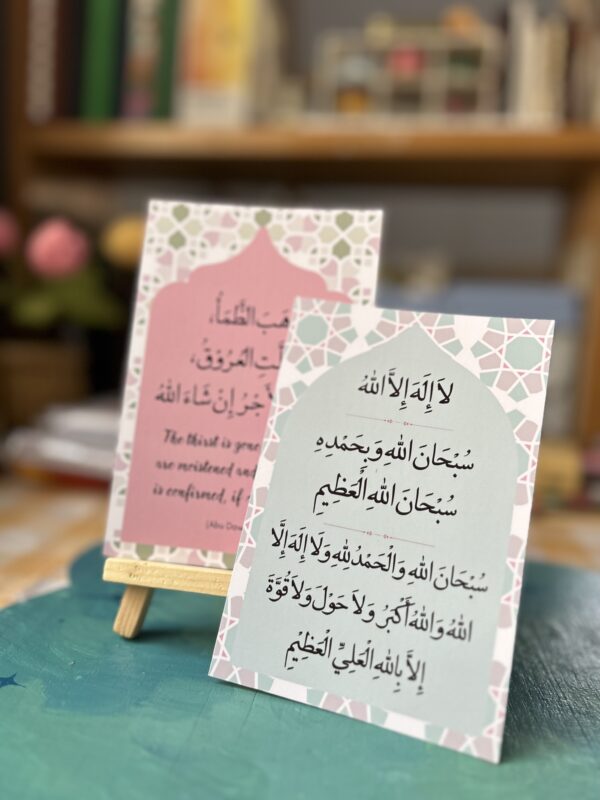 الظَّمَأُ،
الْعُرُوقُ،
إِنْ شَاءَ اللهُ
The thirst is gone
are moistened and
is confirmed, if
لاَ إِلَهَ إِلاَّ اللهُ
سُبْحَانَ اللهِ وَبِحَمْدِهِ
سُبْحَانَ اللهِ الْعَظِيمِ
سُبْحَانَ اللهِ وَالْحَمْدُ لِلهِ وَلَا إِلَهَ إِلَّا
اللهُ وَاللهُ أَكْبَرُ وَلاَ حَوْلَ وَلاَ قُوَّةَ
إِلاَّ بِاللهِ الْعَلِيِّ الْعَظِيْمِ